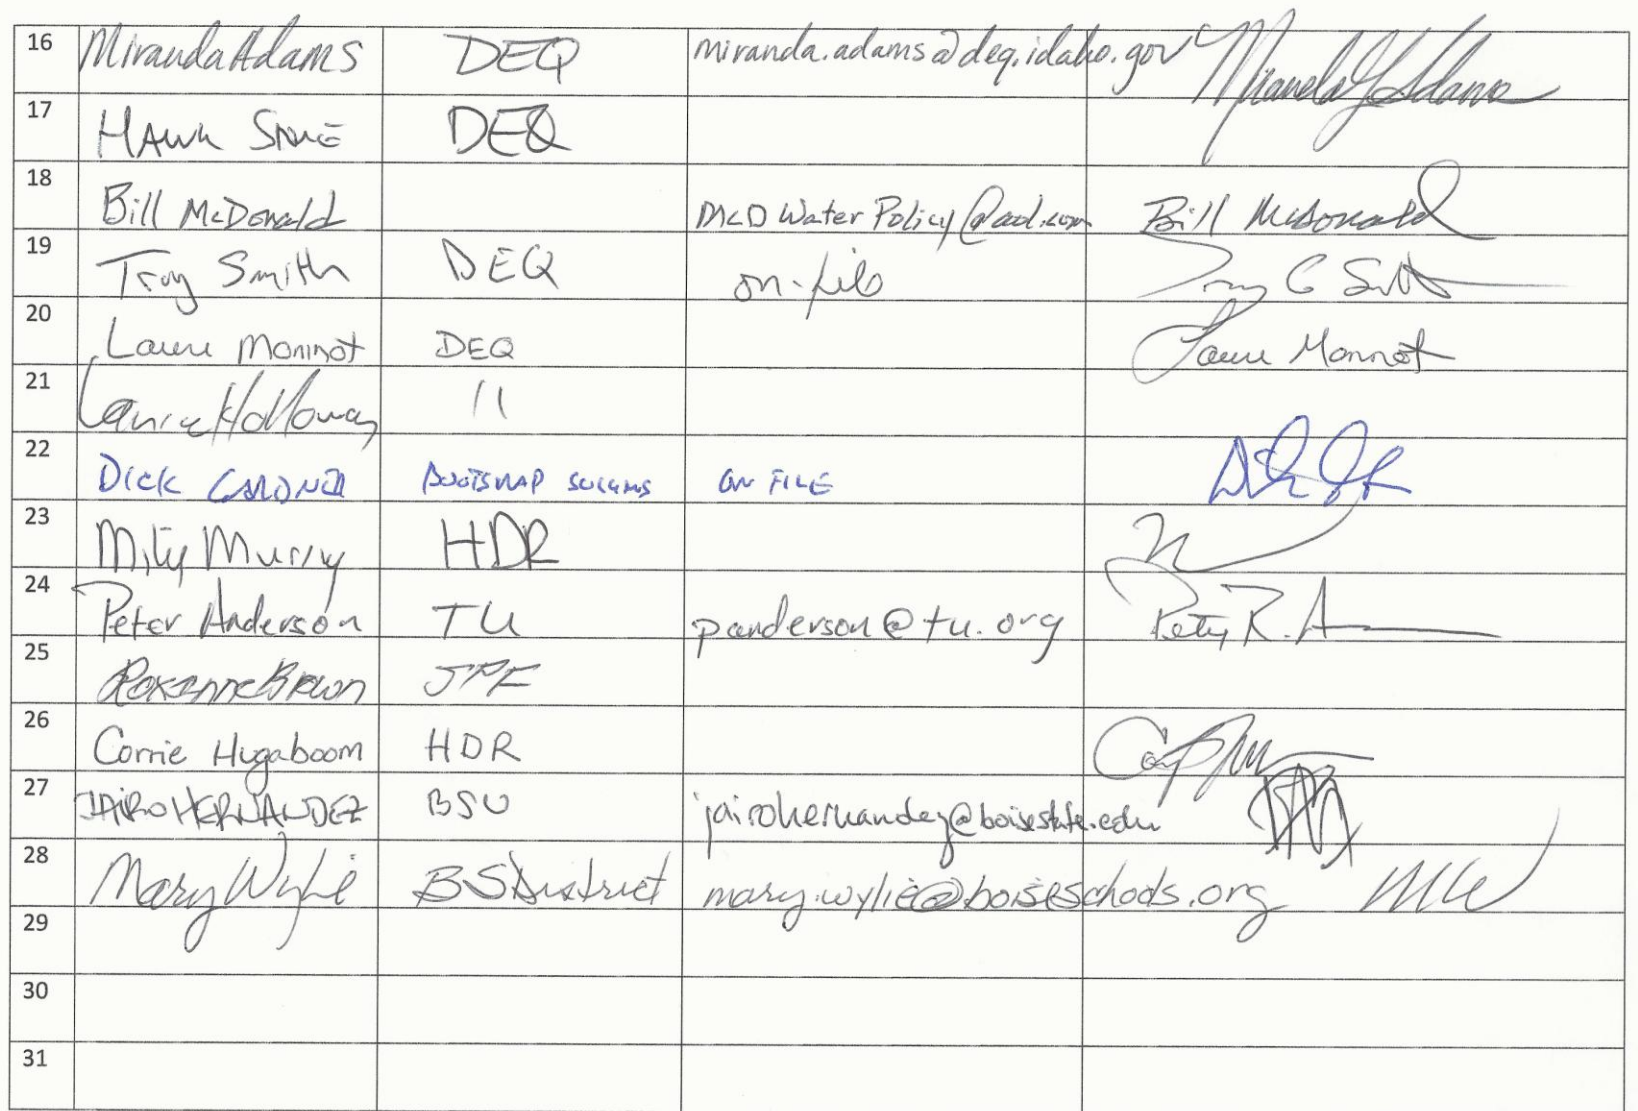 16 Miranda Adams DEQ miranda.adams@deq.idaho.gov Miranda Adams
17 Hawk Stone DEQ
18 Bill McDonald McD Water Policy@aol.com Bill McDonald
19 Troy Smith DEQ on-file Troy G Smith
20 Lauri Monnot DEQ Lauri Monnot
21 Holloway 11
22 DICK GARDNER BOOTSTRAP ON FILE
23 Murry HDR
24 Peter Anderson TU panderson@tu.org Peter R. A
25 Roxanne Brown SPF
26 Corrie Hugaboom HDR
27 JAIRO HERNANDEZ BSU jairohernandez@boisestate.edu
28 Mary Wylie BSDistrict mary.wylie@boiseschools.org MW
29
30
31